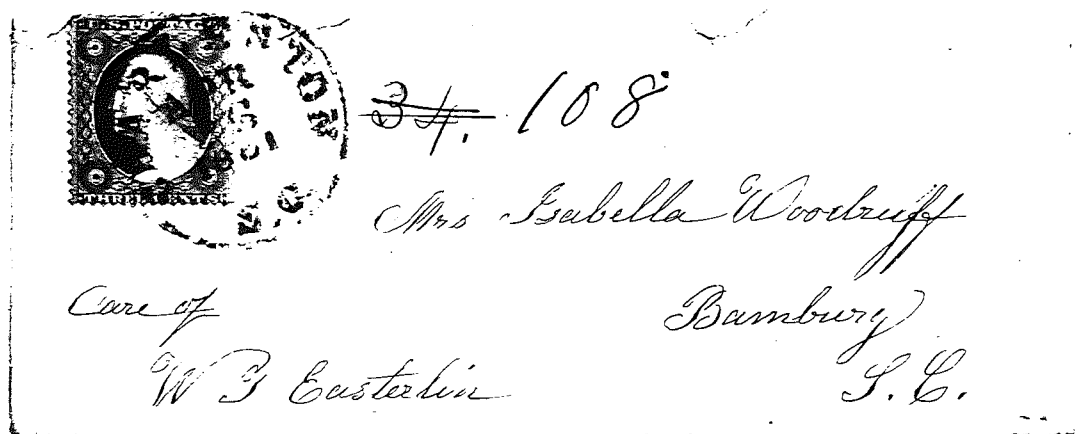 U.S. POSTAGE
THREE CENTS
34. 108
Mrs Isabella Woodruff
Care of
Bamburg
W G Easterlin
S. C.